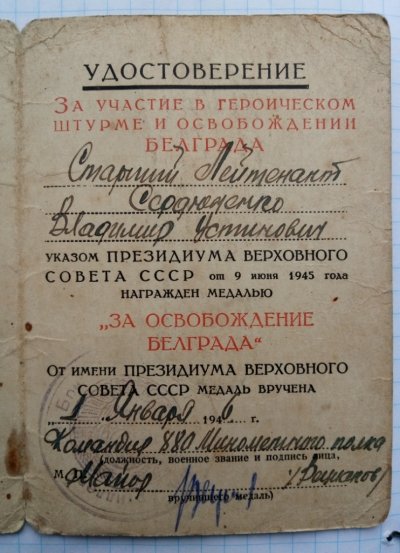 УДОСТОВЕРЕНИЕ
ЗА УЧАСТИЕ В ГЕРОИЧЕСКОМ
ШТУРМЕ И ОСВОБОЖДЕНИИ
БЕЛГРАДА
Старший Лейтенант
Сердюченко
Владимир Устинович
УКАЗОМ ПРЕЗИДИУМА ВЕРХОВНОГО
СОВЕТА СССР от 9 июня 1945 года
НАГРАЖДЕН МЕДАЛЬЮ
„ЗА ОСВОБОЖДЕНИЕ
БЕЛГРАДА“
От имени ПРЕЗИДИУМА ВЕРХОВНОГО
СОВЕТА СССР МЕДАЛЬ ВРУЧЕНА
Января 1946 г.
Командир 880 Минометного полка
(должность, военное звание и подпись лица,
М. Майор
вручившего медаль)